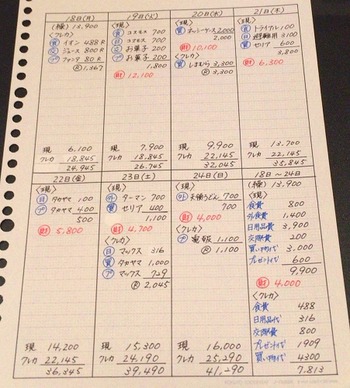 18日(月)
(繰) 13,900
〈クレカ〉
食 イオン 488 R
日 ジュース 800 R
プ フォンテ 80 R
R 1,367
現 6,100
クレカ 18,845
24,945
19日(火)
〈現〉
食 コスモス 700
日 コスモス 700
交 お菓子 200
プ お菓子 200
1,800
財 12,100
現 7,900
クレカ 18,845
26,745
20日(水)
〈現〉
2,000
2,000
財 10,100
〈クレカ〉
買 しまむら 3,300
R 3,300
現 9,900
クレカ 22,145
32,045
21日(木)
〈現〉
食 トライアル 100
日 3100
買 セリア 600
3,800
財 6,300
現 13,700
クレカ 22,145
35,845
22日(金)
〈現〉
日 タカヤマ 100
プ タカヤマ 400
500
財 5,800
現 14,200
クレカ 22,145
36,345
23日(土)
〈現〉
外 ラーメン 700
買 セリア 400
1,100
財 4,700
〈クレカ〉
日 マックス 316
買 タカヤマ 1,000
プ マックス 729
R 2,045
現 15,300
クレカ 24,190
39,490
24日(日)
〈現〉
外 天ぷらうどん 700
700
財 4,000
〈クレカ〉
プ 1,100
R 1,100
現 16,000
クレカ 25,290
41,290
18日〜24日
(繰) 13,900
〈現〉
食費 800
外食費 1,400
日用品費 3,900
交際費 200
買い物代 3,000
プレゼント代 600
9,900
財 4,000
〈クレカ〉
食費 488
日用品代 316
交際費 800
プレゼント代 1909
買い物代 4300
7,813